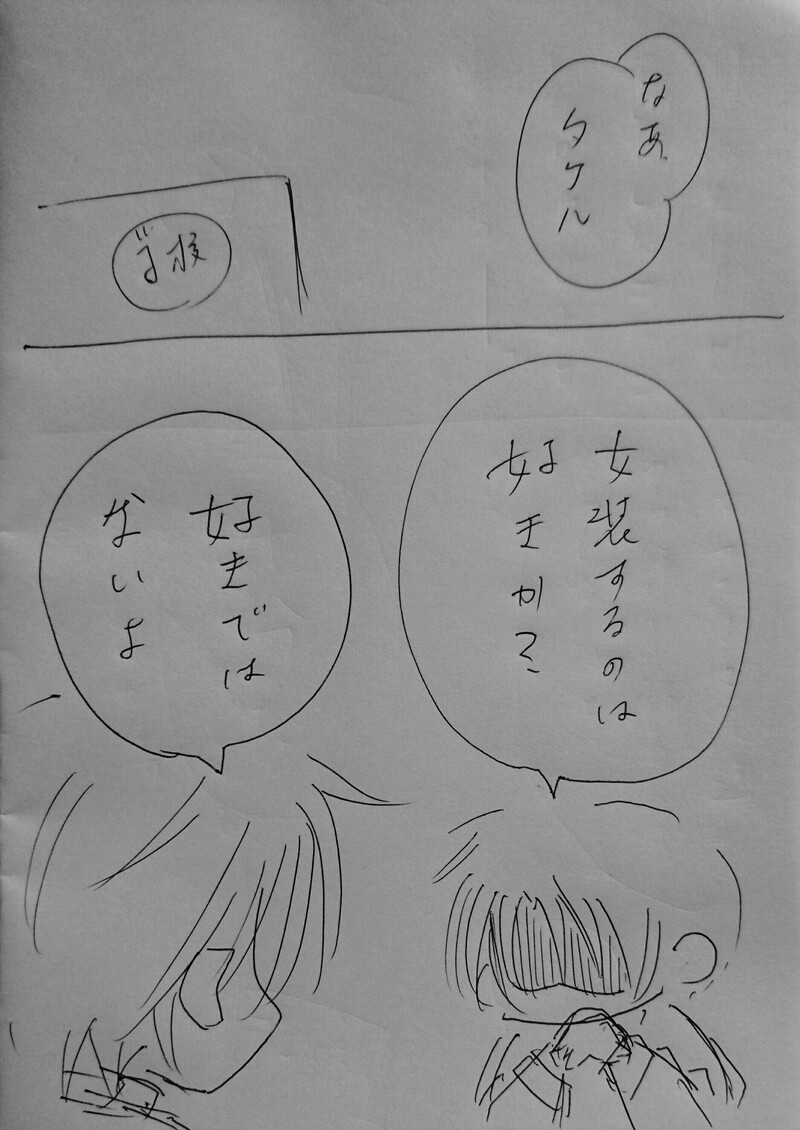 なあ
タケル
学校
女装するのは
好きか?
好きでは
ないよ